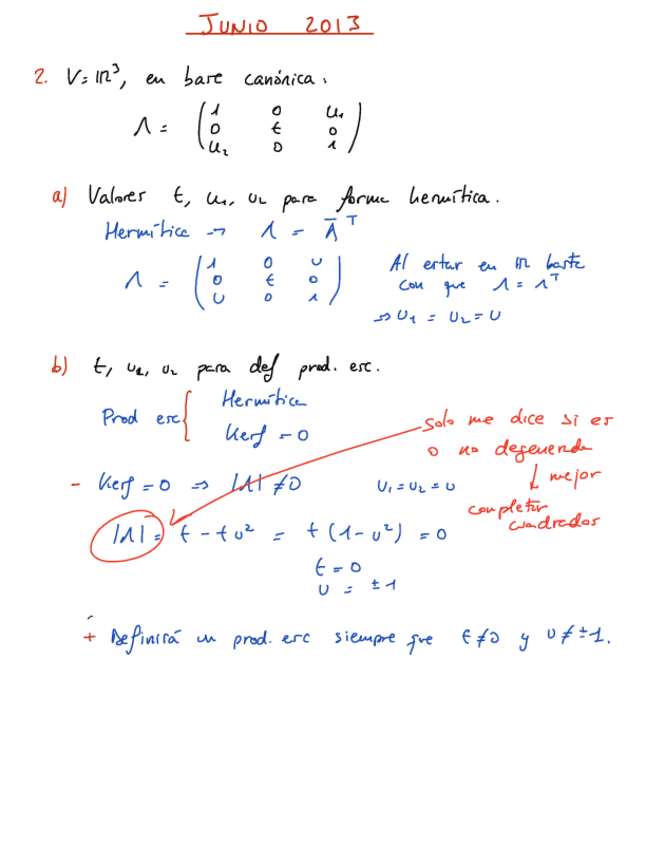 JUNIO 2013
2. V=ℝ³, en base canónica:
Λ = ( 1 0 u₁
0 t 0
u₂ 0 1 )
a) Valores t, u₁, u₂ para forma hermítica.
Hermítica → Λ = Λ̄ᵀ
Λ = ( 1 0 u
0 t 0
u 0 1 )
Al estar en ℝ basta
con que Λ = Λᵀ
⇒ u₁ = u₂ = u
b) t, u₁, u₂ para def prod. esc.
Prod esc { Hermítica
Kerf = 0
solo me dice si es
o no degenerada
↓ mejor
completar
cuadrados
- Kerf = 0 ⇒ |Λ| ≠ 0 u₁ = u₂ = u
|Λ| = t - tu² = t(1-u²) = 0
t = 0
u = ±1
+ Definirá un prod. esc siempre que t≠0 y u≠±1.